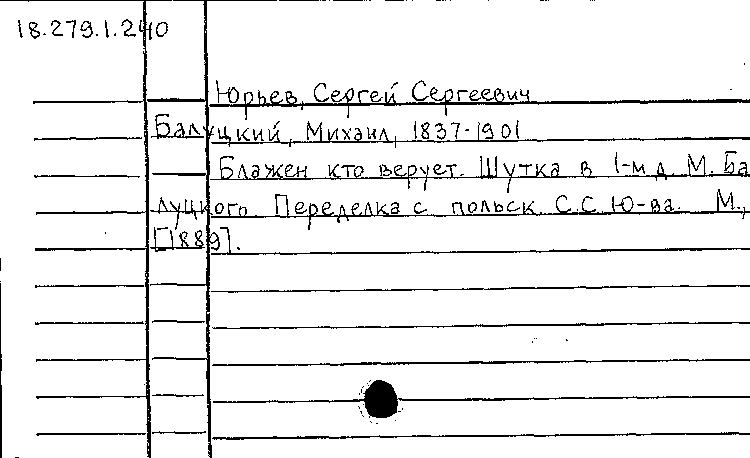 18.279.1.240
Юрьев, Сергей Сергеевич
Балуцкий, Михаил, 1837-1901
Блажен кто верует. Шутка в 1-м д. М. Ба
луцкого. Переделка с польск. С.С. Ю-ва. М.,
[1889].